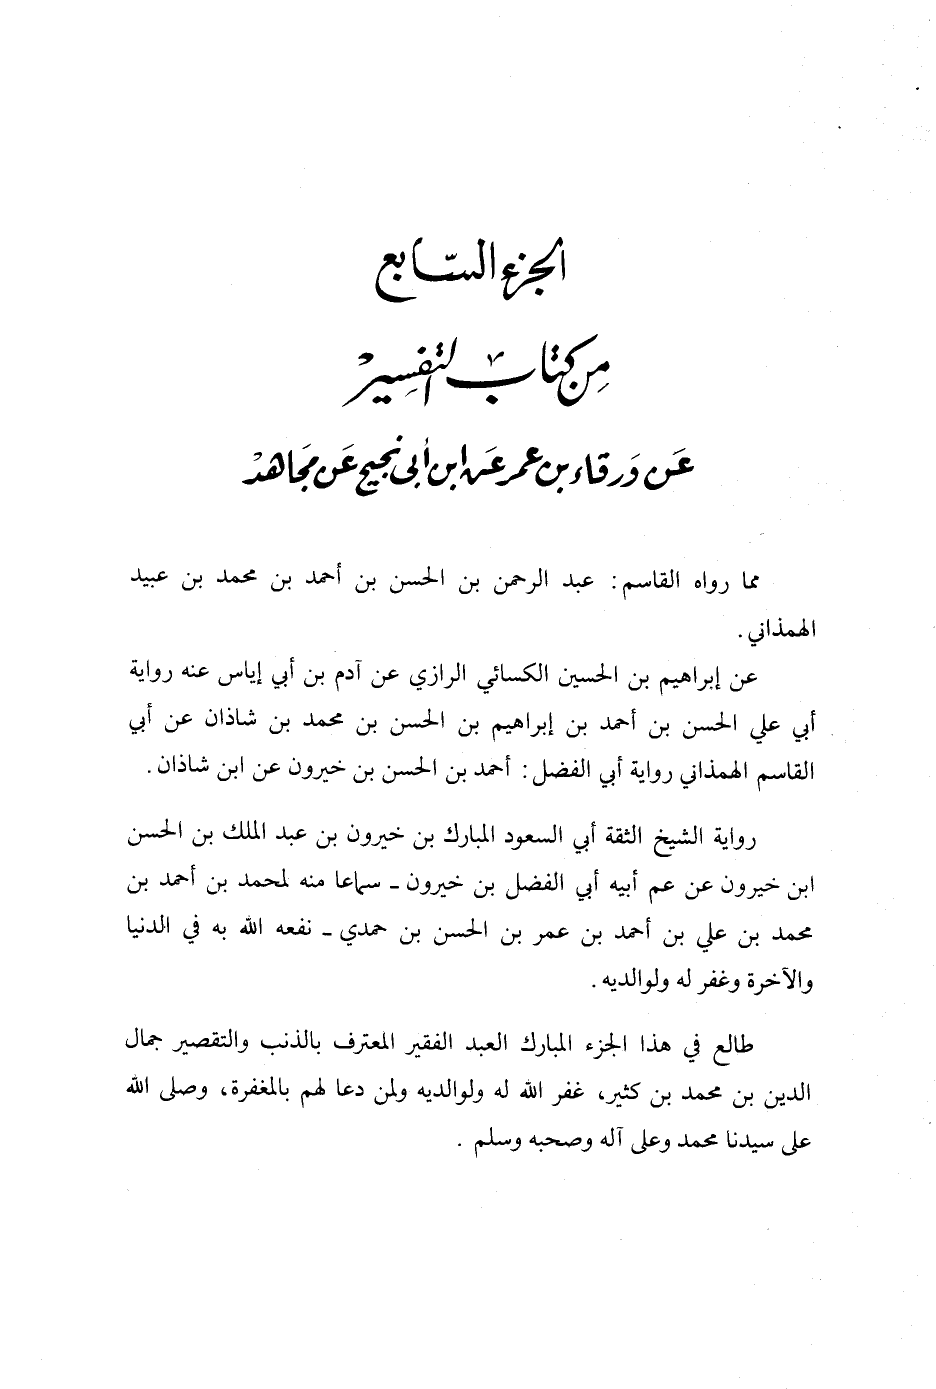 الجزء السّابع
مِن كتاب التفسير
عَن وَرقاء بن عمر عَن ابن أبي نجيح عَن مجَاهد
مما رواه القاسم: عبد الرحمن بن الحسن بن أحمد بن محمد بن عبيد
الهمذاني.
عن إبراهيم بن الحسين الكسائي الرازي عن آدم بن أبي إياس عنه رواية
أبي علي الحسن بن أحمد بن إبراهيم بن الحسن بن محمد بن شاذان عن أبي
القاسم الهمذاني رواية أبي الفضل: أحمد بن الحسن بن خيرون عن ابن شاذان.
رواية الشيخ الثقة أبي السعود المبارك بن خيرون بن عبد الملك بن الحسن
ابن خيرون عن عم أبيه أبي الفضل بن خيرون ـ سماعا منه لمحمد بن أحمد بن
محمد بن علي بن أحمد بن عمر بن الحسن بن حمدي ـ نفعه الله به في الدنيا
والآخرة وغفر له ولوالديه.
طالع في هذا الجزء المبارك العبد الفقير المعترف بالذنب والتقصير جمال
الدين بن محمد بن كثير، غفر الله له ولوالديه ولمن دعا لهم بالمغفرة، وصلى الله
على سيدنا محمد وعلى آله وصحبه وسلم .